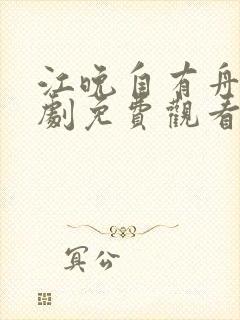 江晚自有舟
劇免費觀看
冥公